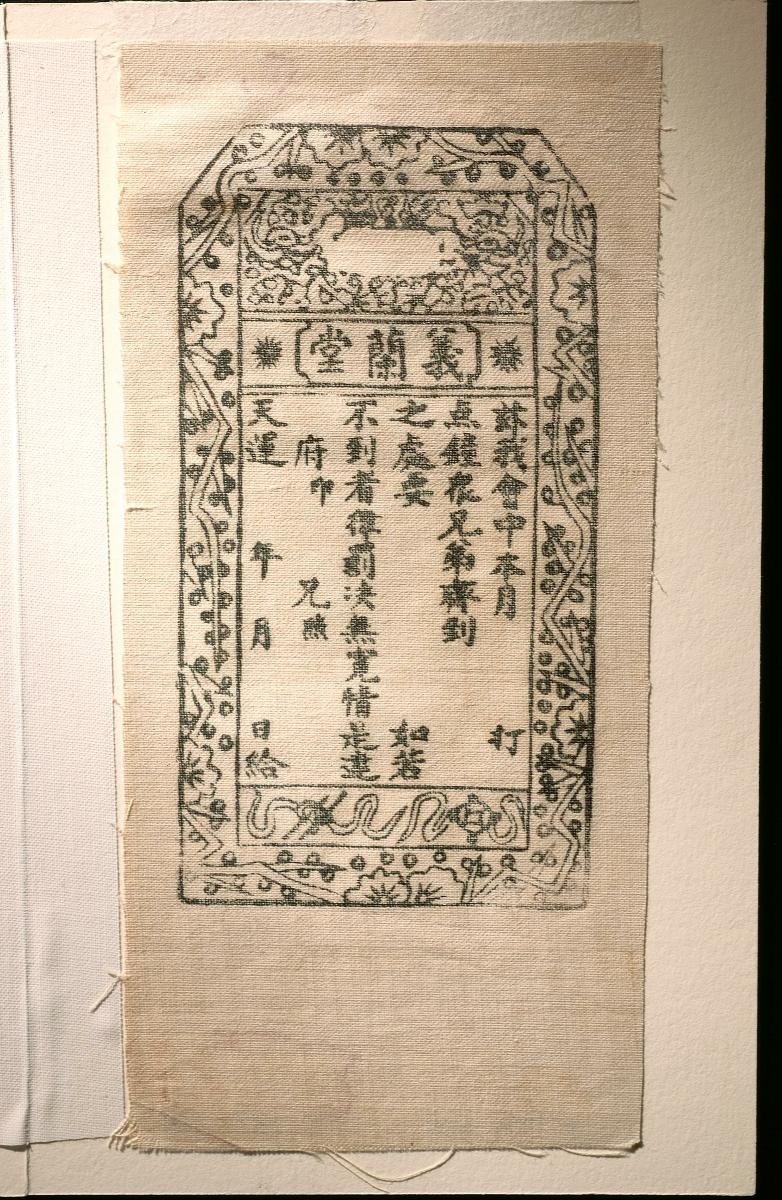 義蘭堂
訴我會中本月 打
点鐘眾兄弟齊到
之處要 如若
不到者律罰決無寬情是達
府印 兄照
天運 年 月 日給